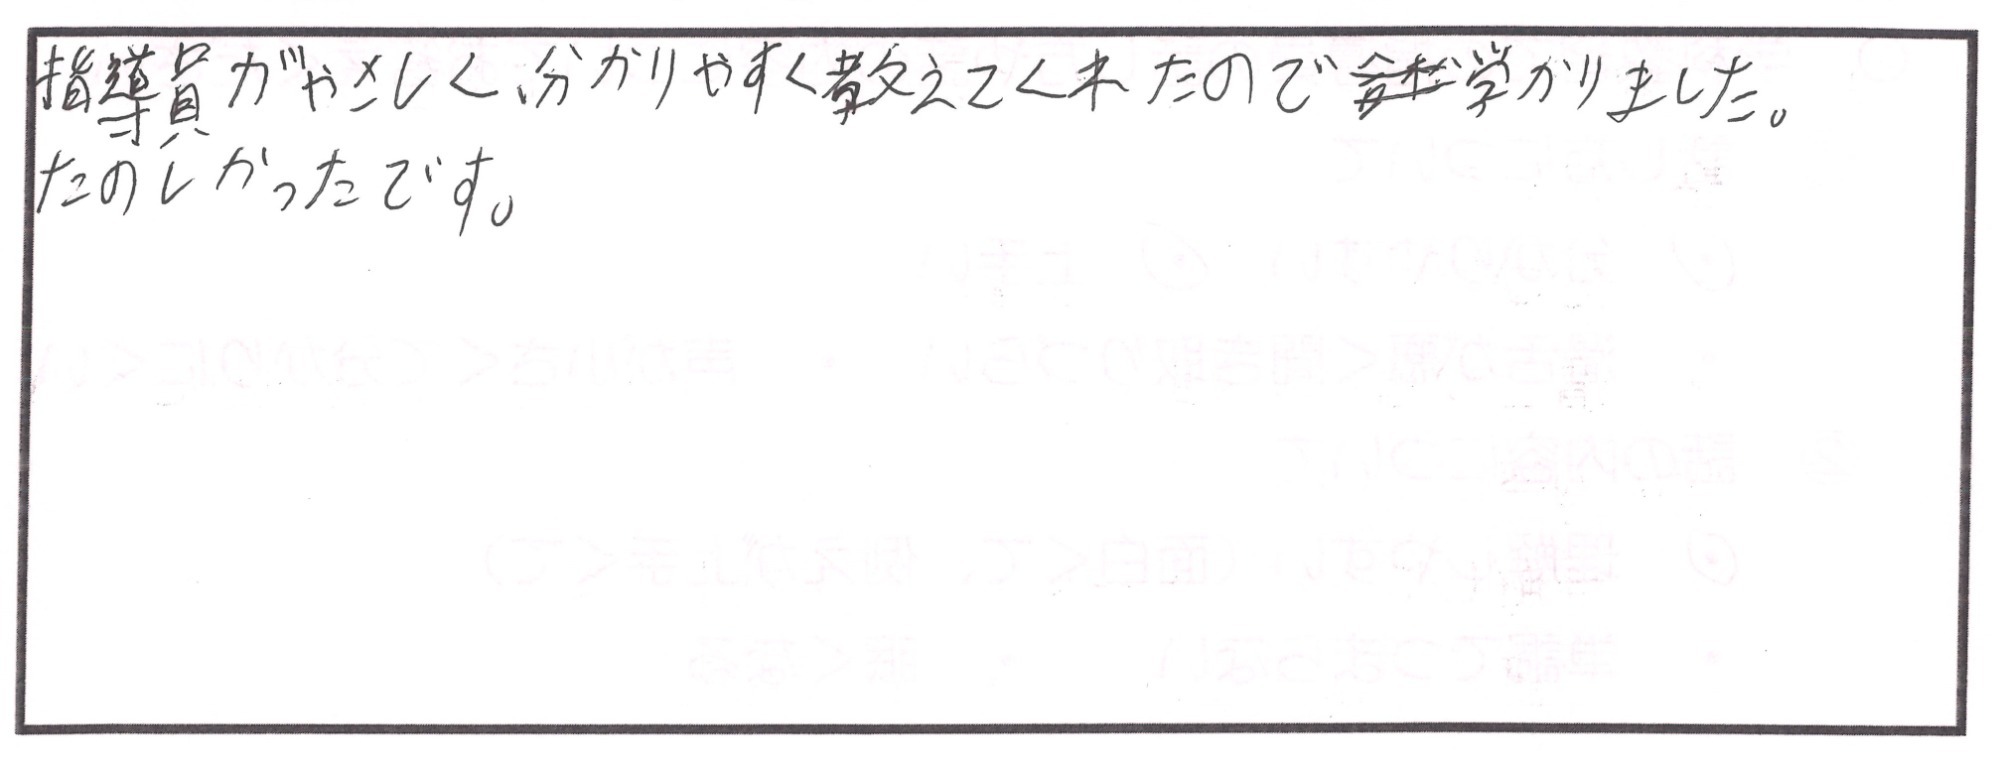 指導員がやさしく、分かりやすく教えてくれたので学かりました。
たのしかったです。